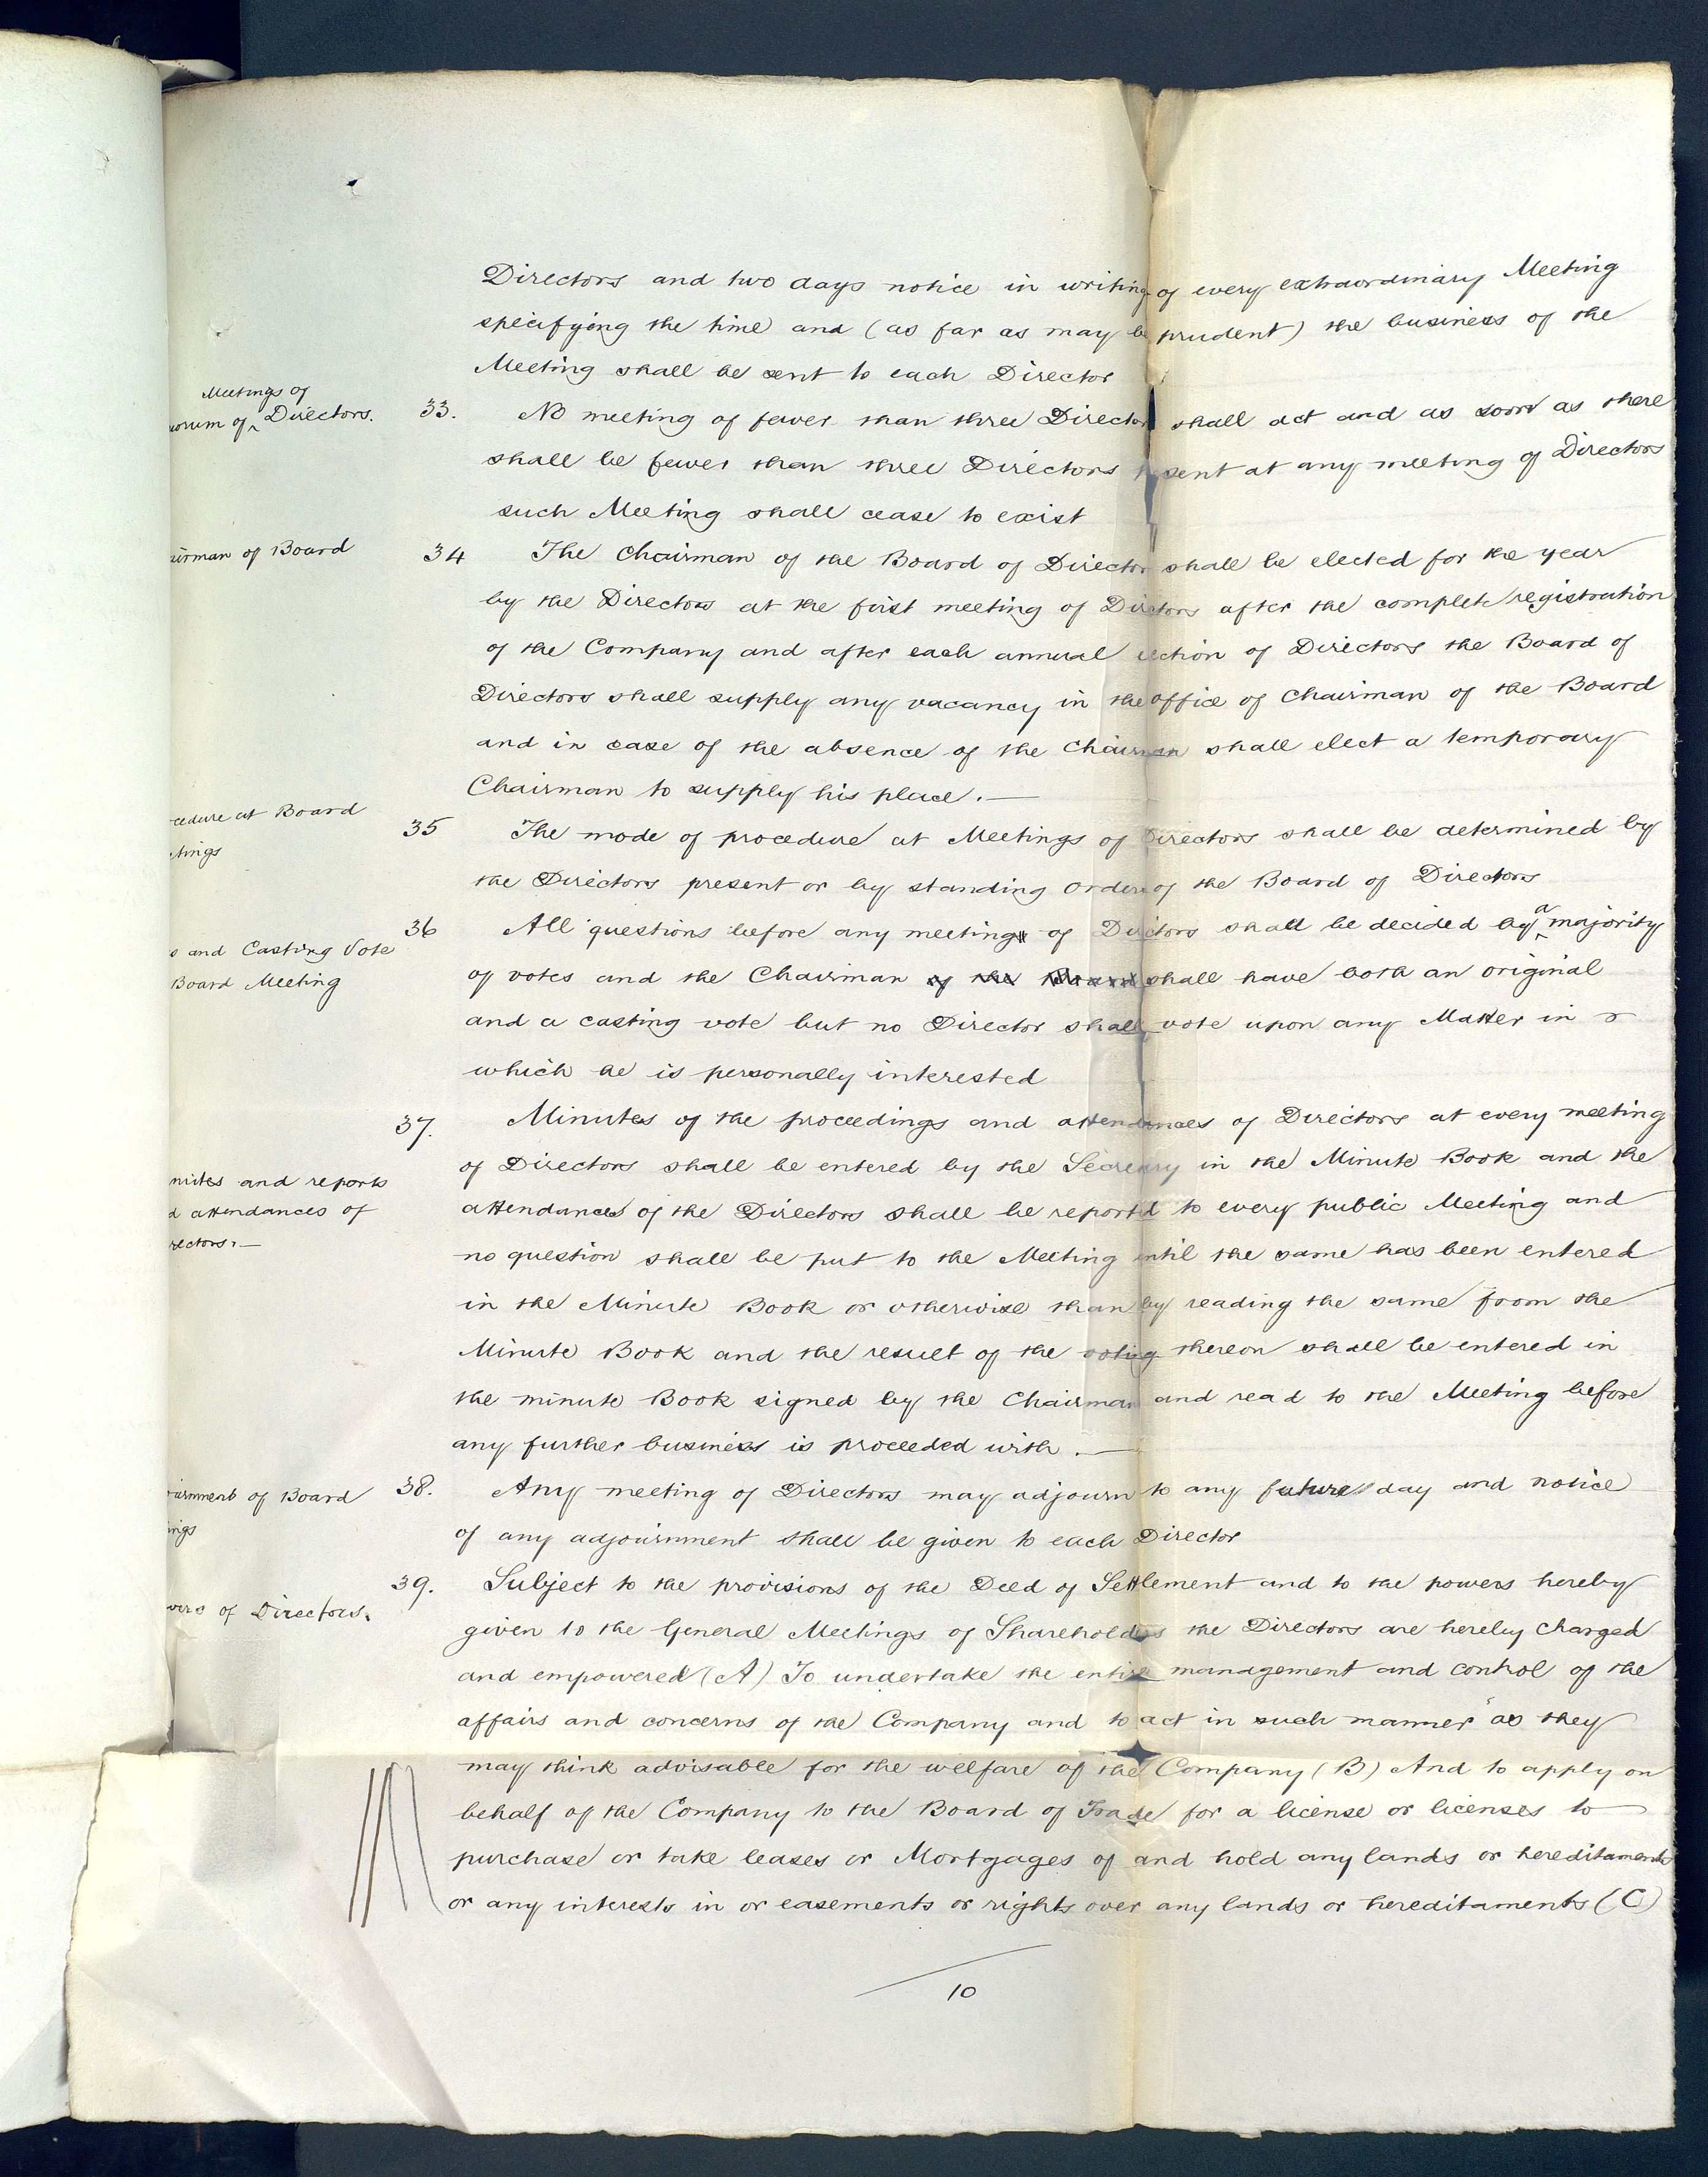 Directors and two days notice in writing of every extraordinary Meeting
specifying the time and (as far as may be prudent) the business of the
Meeting shall be sent to each Director
Meetings of
uorum of ^ Directors.
33. No meeting of fewer than three Director shall act and as soon as there
shall be fewer than three Directors p sent at any meeting of Directors
such Meeting shall cease to exist
airman of Board
34 The Chairman of the Board of Director shall be elected for the year
by the Directors at the first meeting of Directors after the complete registration
of the Company and after each annual ection of Directors the Board of
Directors shall supply any vacancy in the office of Chairman of the Board
and in case of the absence of the Chairman shall elect a temporary
Chairman to supply his place. —
cedure at Board
etings
35 The mode of procedure at Meetings of Directors shall be determined by
the Directors present or by standing Orders of the Board of Directors
s and Casting Vote
Board Meeting
36 All questions before any meeting of Directors shall be decided by ^a majority
of votes and the Chairman of the Board shall have both an original
and a casting vote but no Director shall vote upon any Matter in
which he is personally interested
nutes and reports
d attendances of
rectors. —
37. Minutes of the proceedings and attendances of Directors at every meeting
of Directors shall be entered by the Secretary in the Minute Book and the
attendances of the Directors shall be reported to every public Meeting and
no question shall be put to the Meeting until the same has been entered
in the Minute Book or otherwise than by reading the same from the
Minute Book and the result of the voting thereon shall be entered in
the minute Book signed by the Chairman and read to the Meeting before
any further business is proceeded with. —
ournment of Board
ings
38. Any meeting of Directors may adjourn to any future day and notice
of any adjournment shall be given to each Director
wers of Directors.
39. Subject to the provisions of the Deed of Settlement and to the powers hereby
given to the General Meetings of Shareholders the Directors are hereby charged
and empowered (A) To undertake the entire management and control of the
affairs and concerns of the Company and to act in such manner as they
may think advisable for the welfare of the Company (B) And to apply on
behalf of the Company to the Board of Trade for a license or licenses to
purchase or take leases or Mortgages of and hold any lands or hereditaments
or any interests in or easements or rights over any lands or hereditaments (C)
10